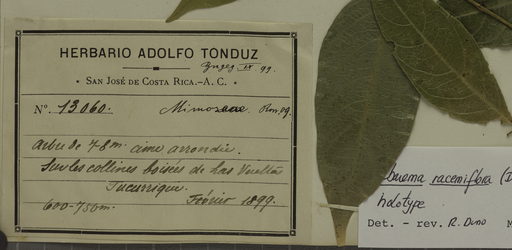 HERBARIO ADOLFO TONDUZ
SAN JOSÉ DE COSTA RICA.—A. C.
Nº. 13060. Mimosaceae
arbre de 7-8 m. cime arrondie.
Sur les collines boisées de Las Vueltas
Tucurrique.
600-750m. Février 1899.
racemiflora (D
holotype
Det. - rev. R. M